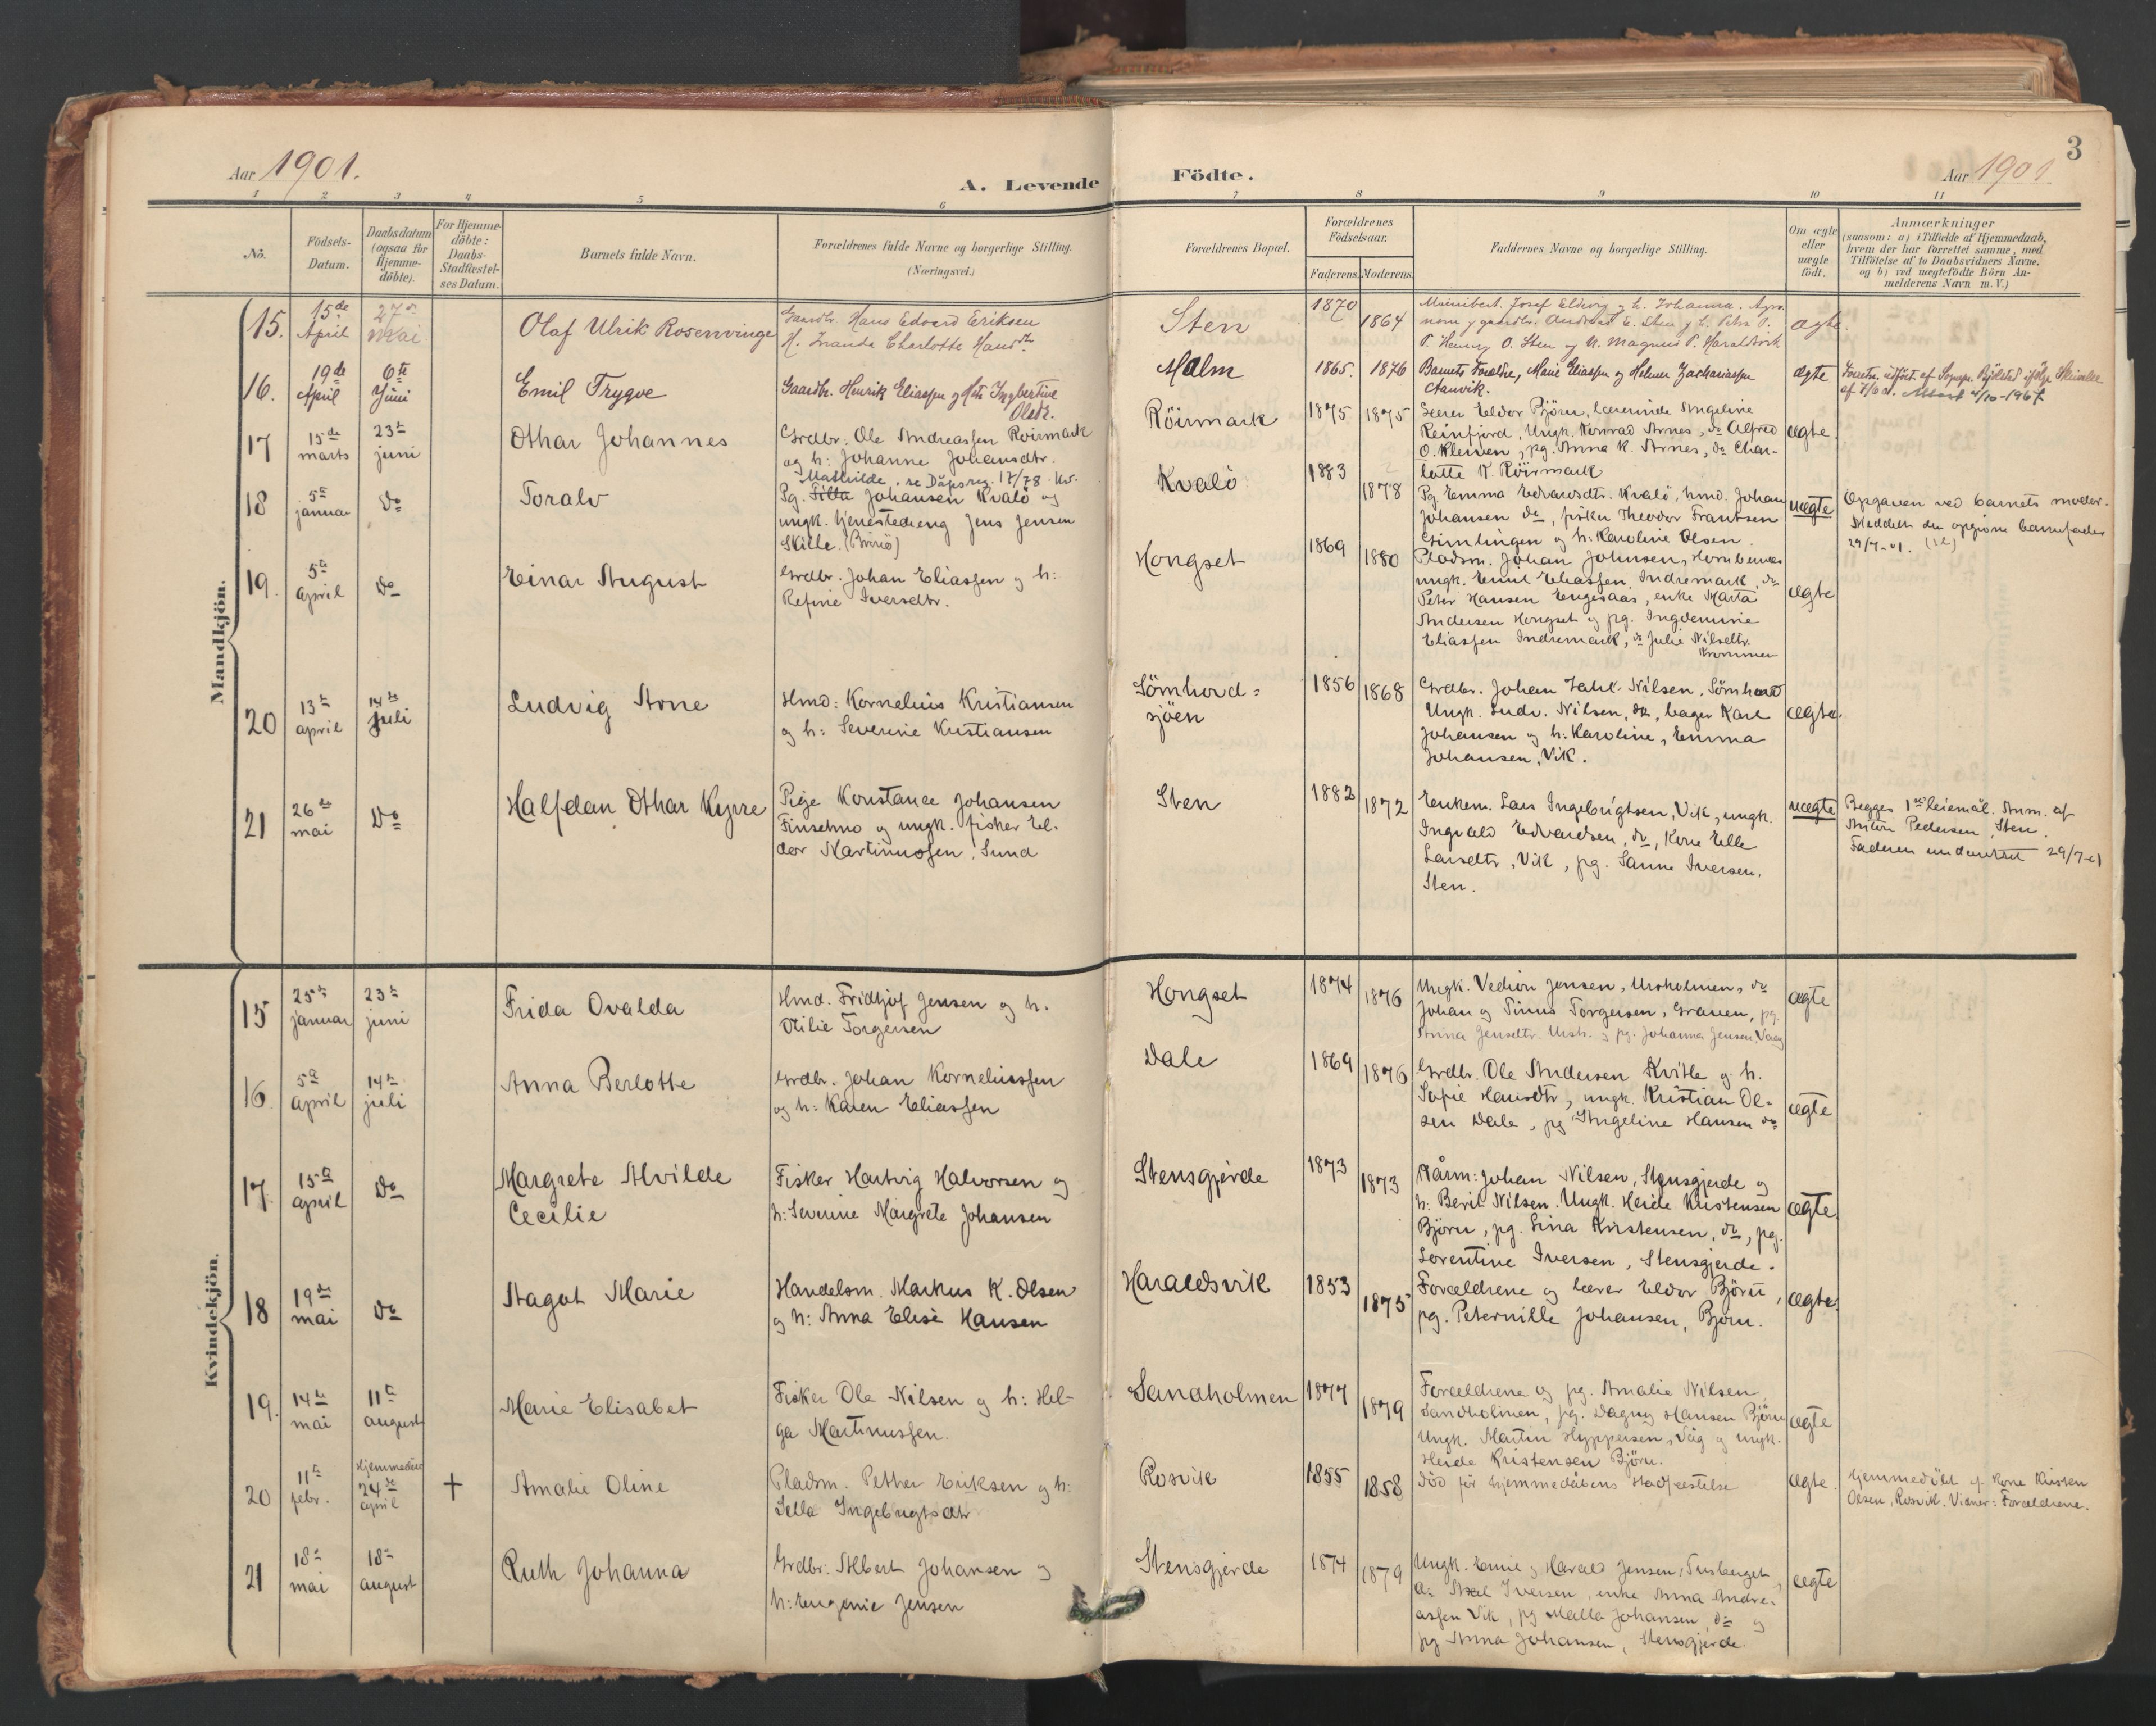 3
Aar 1901.
A. Levende Födte.
Aar 1901.
1 2 3 4 5 6 7 8 9 10 11
No.
Födsels-
Datum.
Daabsdatum
(ogsaa for
Hjemme-
döbte).
For Hjemme-
döbte:
Daabs-
Stadfæstel-
ses Datum.
Barnets fulde Navn.
Forældrenes fulde Navne og borgerlige Stilling.
(Næringsvei.)
Forældrenes Bopæl.
Forældrenes
Födselsaar.
Faderens.
Moderens.
Faddernes Navne og borgerlige Stilling.
Om ægte
eller
uægte
födt.
Anmærkninger
(saasom: a) i Tilfælde af Hjemmedaab,
hvem der har forrettet samme, med
Tilföielse af to Daabsvidners Navne.
og b) ved uægtefödte Börn An-
melderens Navn m. V.)
Mandkjön.
15.
15de
April
27de
Mai
Olaf Ulrik Rosenvinge
Gaardbr. Hans Edvard Eriksen
H. Charlotte Hansdtr
Sten
1870
1864
Josef Eldevig og h. Johanna.
gaardbr. Andreas E. Sten og h. Petra P.
P. Henrig O. Sten og U. Magnus P. Haraldsvik
ægte.
16.
19de
April
6te
Juni
Emil Trygve
Gaardbr. Henrik Eliassen og Ingbertine
Olsdtr.
Malm
1865.
1876
Barnets Forældre, Marie Eliassen og Helmer Zachariassen
ægte
af
17
15de
marts
23de
juni
Othar Johannes
Grdbr: Ole Andreassen Röirmark
og h: Johanne Johansdtr.
Röirmark
1875
1875
Lærer Eldor Björn, lærerinde Angeline
Reinfjord, Ungk. Konrad Arnes, do Alfred
O. Kleiven, pg. Anna K. Arnes, do Char-
lotte K. Röirmark
ægte
18
5te
januar
do
Toralv
Mathilde, se Dåpsreg. 17/78.
Pg. Johansen Kvalö og
ungk. tjenestedreng Jens Jensen
Skille. (Brönö)
Kvalö
1883
1878
Pg. Emma Edvardsdtr. Kvalö, hmd. Johan
Johansen do, fisker Theodor Frantsen
Gimlingen og h: Karoline Olsen.
uægte
Opgaven ved barnets moder.
Meddelt den opgivne barnefader
29/7-01.
19.
5te
april
do
Einar August
Grdbr. Johan Eliassen og h:
Refine Iversdtr.
Hongset
1869
1880
Pladsm. Johan Johnsen, Hornbernes
ungk. Emil Eliassen Indremark, do
Peter Hansen Engesaas, enke Marta
Andersen Hongset og pg. Ingdemine
Eliassen Indremark, do Julie Nilsdtr.
ægte
20
13te
april
14de
juli
Ludvig Arne
Hmd: Kornelius Kristiansen
og h: Severine Kristiansen
Sömhovd=
sjöen
1856
1868
Grdbr. Johan Zahl Nilsen, Sömhovd
Ungk. Ludv. Nilsen, do, bager Karl
Johansen og h: Karoline, Emma
Johansen, Vik.
ægte.
21
26de
mai
do
Halfdan Othar Kyrre
Pige Konstance Johansen
Finsehno og ungk. fisker El-
dor Martinusen, Sund
Sten
1882
1872
Enkem. Lars Ingebrigtsen, Vik, ungk.
Ingvald Edvardsen, do, Kone Elle
Larsdtr, Vik, pg. Sanne Iversen,
Sten.
uægte
Begges 1ste leiemål. Anm. af
Anton Pedersen, Sten.
Faderen underrettet 29/7-01
Kvindekjön.
15
25de
januar
23de
juni
Frida Ovalda
Hmd. Fridtjof Jensen og h.
Otilie Torgersen
Hongset
1874
1876
Ungk. Vedion Jensen, Ursholmen, do
Johan og Tinus Torgersen, Graven, pg.
Anna Jensdtr. Ursh. og pg. Johanna Jensen Vaag
ægte
16
5te
april
14de
juli
Anna Berlotte
Grdbr. Johan Korneliussen
og h: Karen Eliassen
Dale
1869
1876
Grdbr. Ole Andersen Kvitle og h.
Sofie Hansdtr, ungk. Kristian Ol-
sen Dale, pg Angeline Hansen do
ægte
17.
15de
april
do
Margrete Alvilde
Cecilie
Fisker Hartvig Halvorsen og
h: Severine Margrete Johansen
Stensgjerde
1873
1873
Johan Nilsen, Stensgjerde og
h. Berit Nilsen. Ungk. Heide Kristensen
Björn, pg. Lina Kristensen, do, pg.
Lorentine Iversen, Stensgjerde.
ægte.
18
19de
mai
do
Aagot Marie
Handelsm. Markus K. Olsen
og h: Anna Elise Hansen
Haraldsvik
1853
1875
Forældrene og lærer Eldor Björn,
pg. Peternille Johansen, Björn.
ægte.
19.
14de
mai
11te
august
Marie Elisabet
Fisker Ole Nilsen og h: Hel-
ga Martinussen.
Sandholmen
1877
1879
Forældrene og pg. Amalie Nilsen
Sandholmen, pg. Dagny Hansen Björn
Ungk. Martin Hyppersen, Våg og ungk.
Heide Kristensen Björn.
ægte
20
11te
febr.
Hjemmedöbt
24de
april
+
Amalie Oline
Pladsm. Petter Eriksen og h:
Sella Ingebrigtsdtr
Rosvik
1855
1858
Död för hjemmedåbens stadfæstelse
ægte
Hjemmedöbt af Kone Kirsten
Olsen, Rosvik. Vidner: Forældrene.
21
18de
mai
18de
august
Ruth Johanna
Grdbr: Albert Johansen og
h: Eugenie Jensen
Stensgjerde
1874
1879
Ungk. Emil og Harald Jensen, Tusberget,
do Axel Iversen, enke Anna Andre-
assen Vik, pg Malla Johansen, do og
pg Anna Johansen, Stensgjerde.
ægte